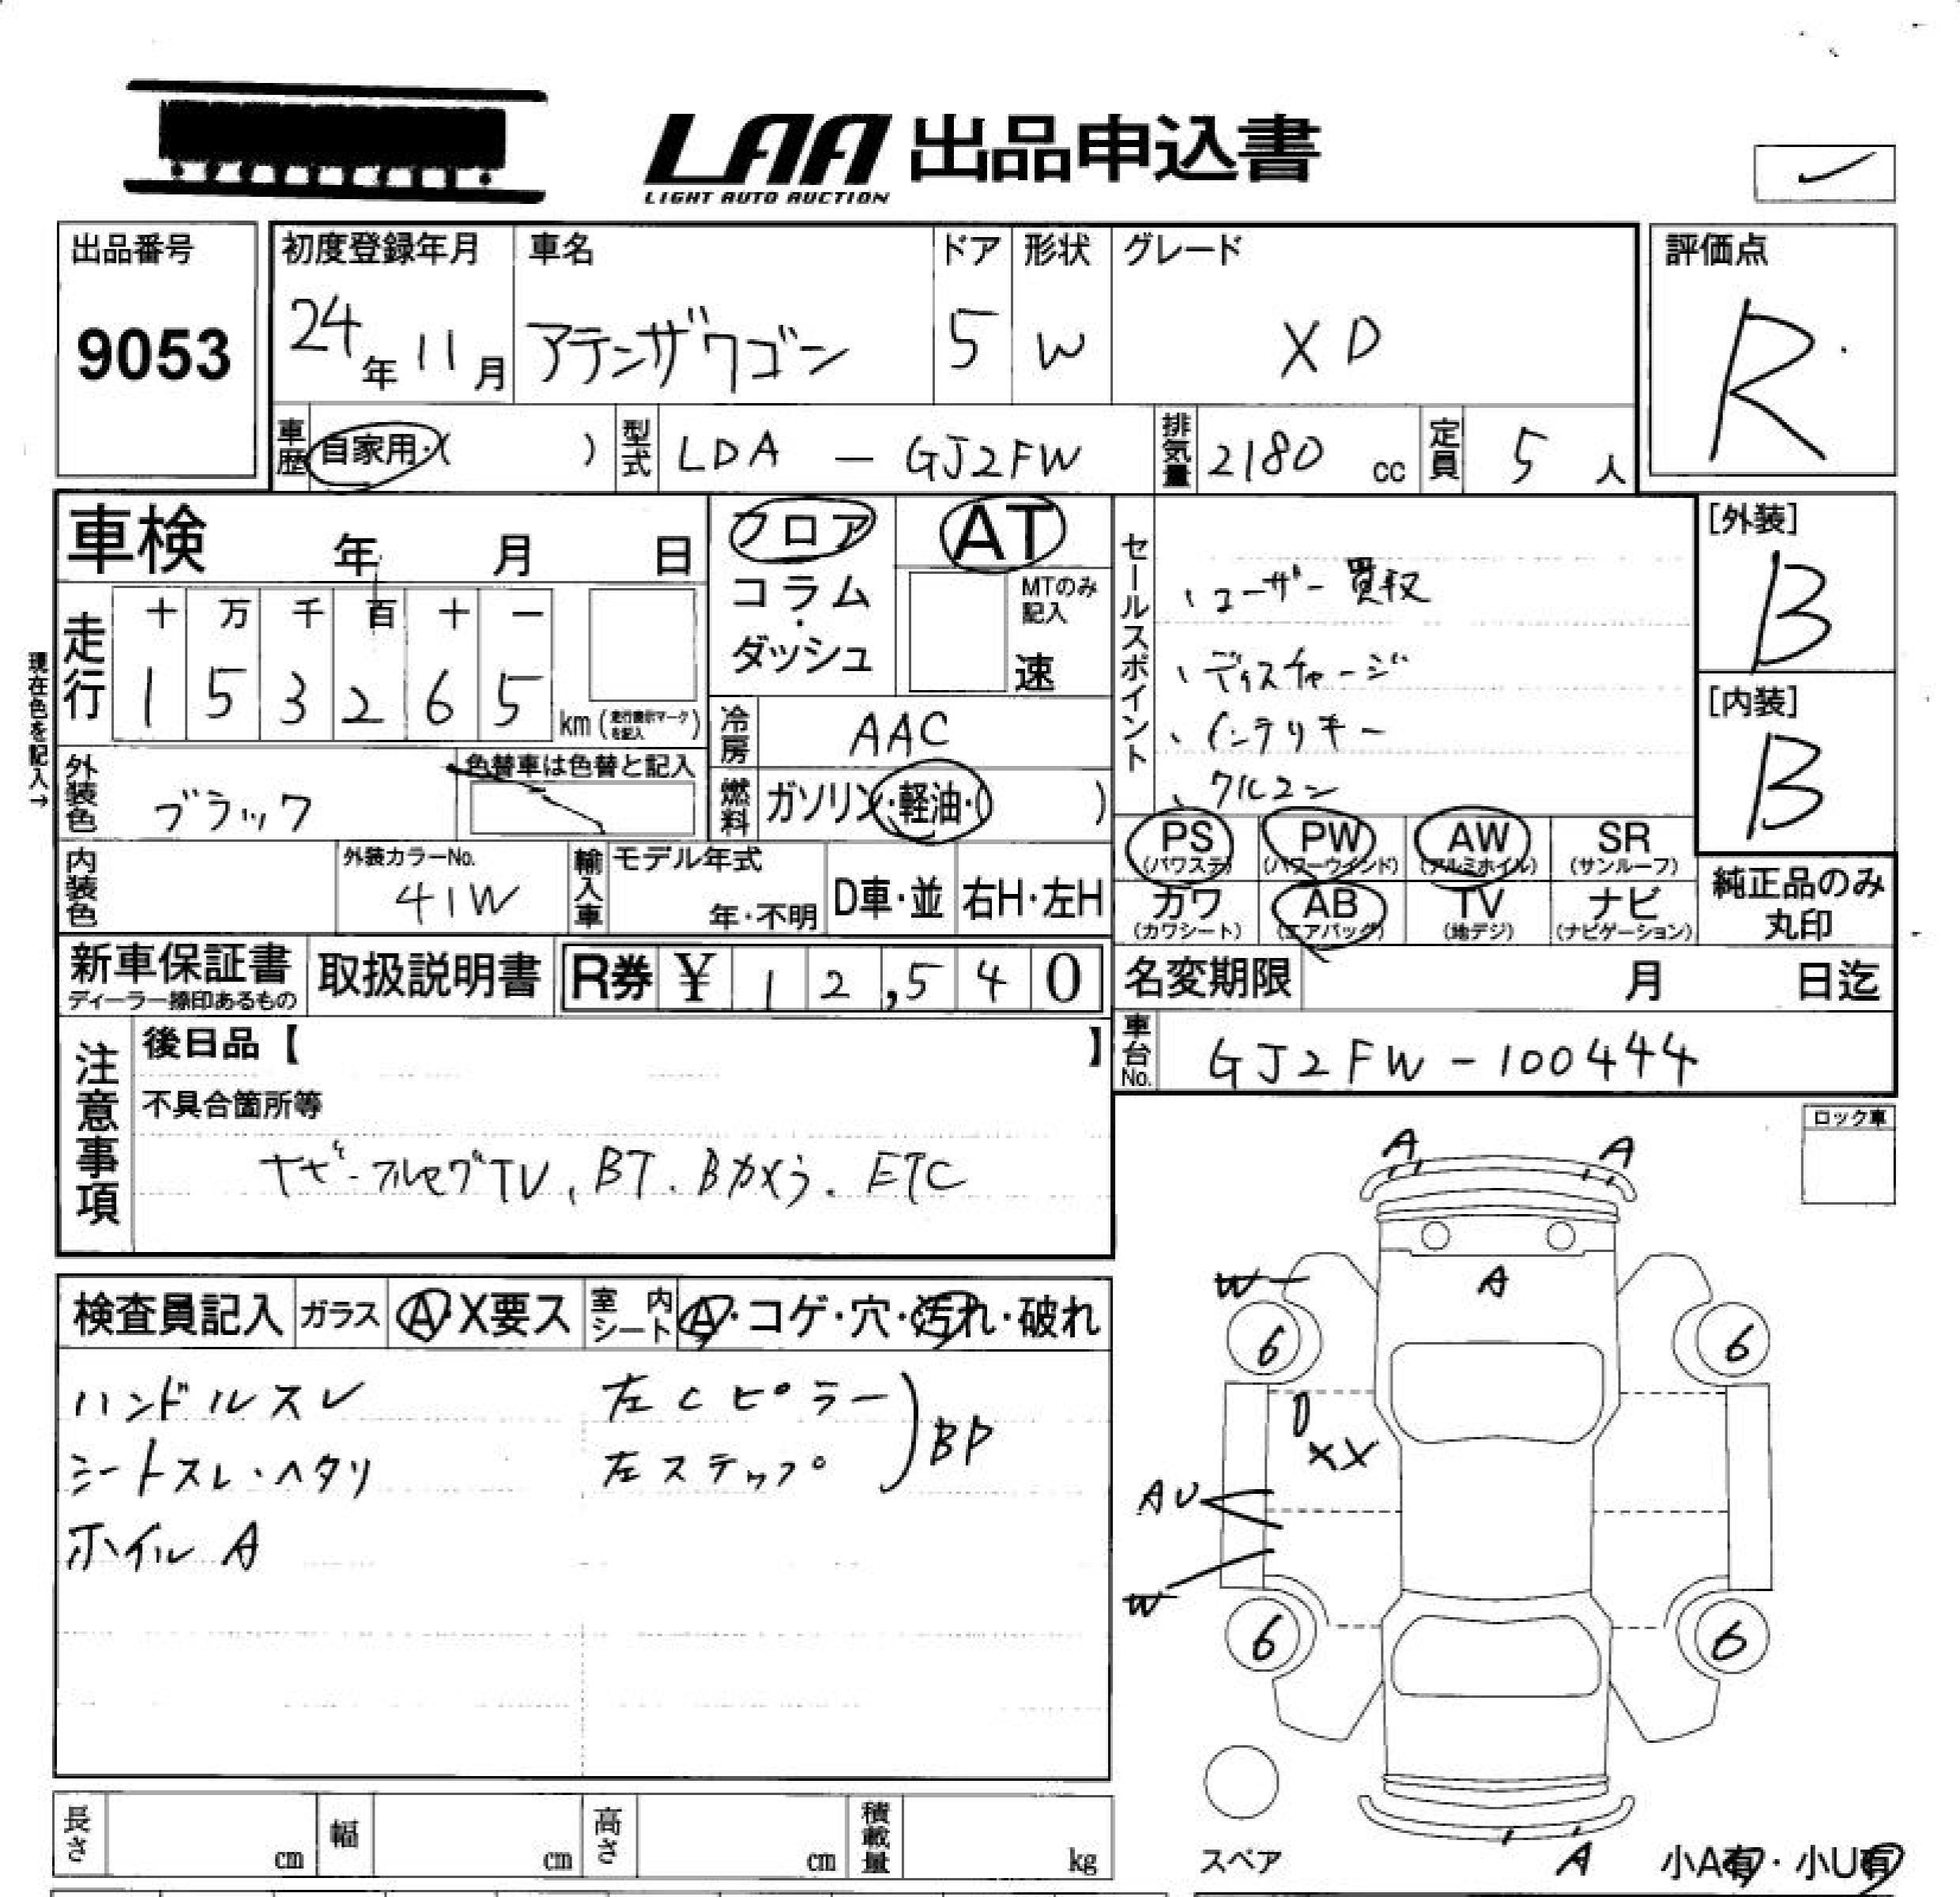 LAA 出品申込書
LIGHT AUTO AUCTION
出品番号
9053
初度登録年月
24年11月
車名
アテンザワゴン
ドア
5
形状
W
グレード
XD
評価点
R
車歴
自家用・( )
型式
LDA - GJ2FW
排気量
2180 cc
定員
5 人
車検 年 月 日
走行
十 万 千 百 十 一
1 5 3 2 6 5
km (走行表示マークを記入)
現在色を記入→
フロア
コラム
・
ダッシュ
AT
MTのみ
記入
速
冷房
AAC
燃料
ガソリン・軽油・( )
外装色
ブラック
色替車は色替と記入
内装色
外装カラーNo.
41W
輸入車
モデル年式
年・不明
D車・並
右H・左H
セールスポイント
、ユーザー買取
、ディスチャージ
、インテリキー
、クルコン
[外装]
B
[内装]
B
PS
(パワステ)
PW
(パワーウインド)
AW
(アルミホイル)
SR
(サンルーフ)
カワ
(カワシート)
AB
(エアバッグ)
TV
(地デジ)
ナビ
(ナビゲーション)
純正品のみ
丸印
新車保証書
ディーラー捺印あるもの
取扱説明書
R券 ¥ 12,540
名変期限 月 日迄
車台No.
GJ2FW-100444
注意事項
後日品【 】
不具合箇所等
ナビ・フルセグTV、BT、Bカメラ、ETC
ロック車
検査員記入
ガラス
A・X要ス
室内
シート
A・コゲ・穴・汚れ・破れ
ハンドルスレ
シートスレ・ヘタリ
ホイルA
左Cピラー
左ステップ
BP
A A
W A
6 6
XX
AU
W
6 6
スペア
A
小A有・小U有
長さ cm
幅 cm
高さ cm
積載量 kg